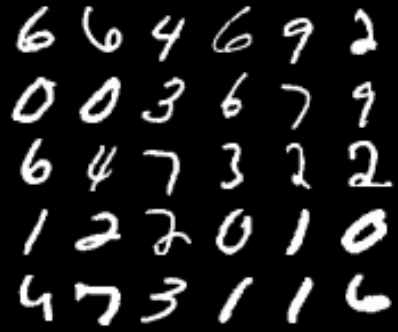 6 6 4 6 9 2
0 0 3 6 7 9
6 4 7 3 2 2
1 2 2 0 1 0
4 7 3 1 1 6